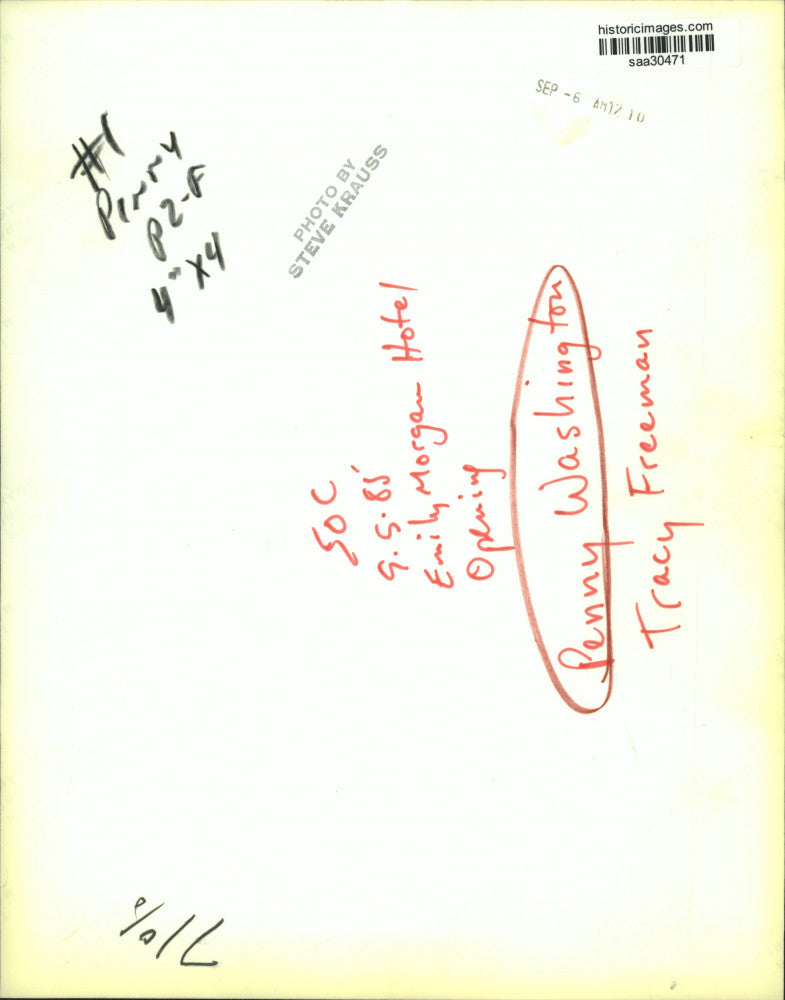 historicimages.com
saa30471
SEP -6 AM12 10
#1
Penny
P2-F
4" X4
PHOTO BY
STEVE KRAUSS
SOC
9.5.85
Emily Morgan Hotel
Opening
Penny Washington
Tracy Freeman